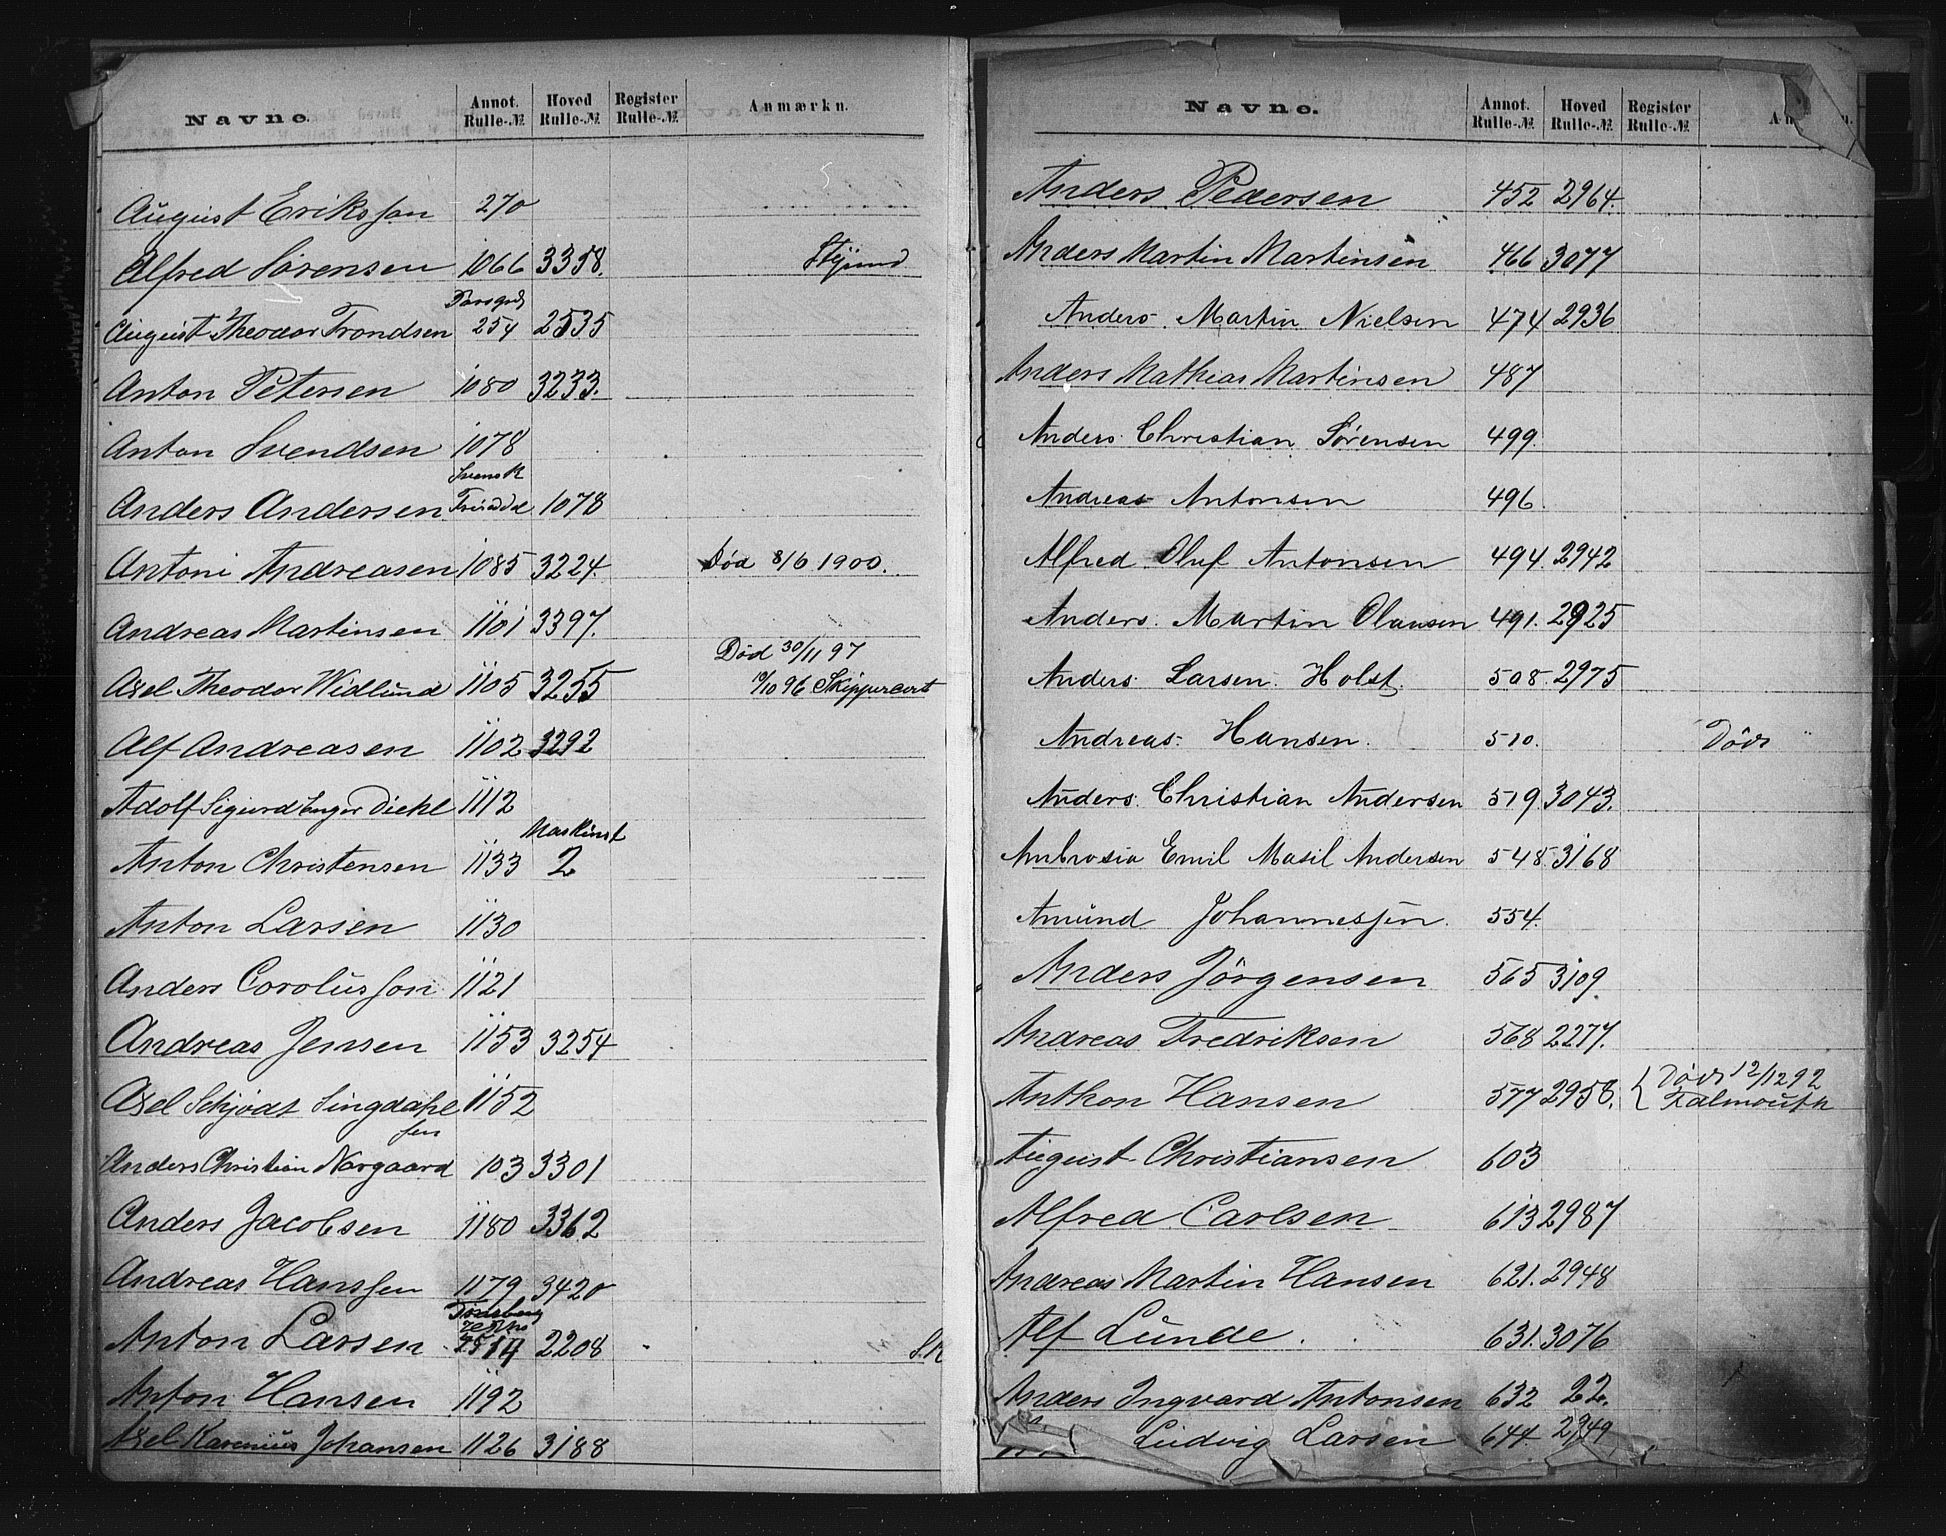 Navne Annot. Rulle-№ Hoved Rulle-№ Register Rulle-№ Anmærkn.
August Eriksson 270
Alfred Sørensen 1066 3358.
August Theodor Trondsen 254 2535
Anton Petersen 1080 3233.
Anton Svendsen 1078
Svensk
Anders Andersen 1078
Antoni Andreasen 1085 3224. Død 8/6 1900.
Andreas Martinsen 1101 3397.
Død 30/11 97
Axel Theodor Widlund 1105 3255 /10 96 Skippercert
Alf Andreasen 1102 3292
Adolf Sigurd Unger Diehl 1112
Maskinst
Anton Christensen 1133 2
Anton Larsen 1130
Anders Corolusson 1121
Andreas Jensen 1153 3254
Axel Schjødt Singdahlsen 1152
Anders Christian Norgaard 103 3301
Anders Jacobsen 1180 3362
Andreas Hanssen 1179 3420
Tønsberg
Anton Larsen 2208
Anton Hansen 1192
Axel Karenius Johansen 1126 3188
Navne. Annot. Rulle-№ Hoved Rulle-№ Register Rulle-№
Anders Pedersen 452 2964.
Anders Martin Martinsen 466 3077
Anders Martin Nielsen 474 2936
Anders Mathias Martinsen 487
Anders Christian Sørensen 499.
Andreas Antonsen 496.
Alfred Oluf Antonsen 494. 2942
Anders Martin Olausen 491. 2925
Anders Larsen Holst. 508. 2975
Andreas Hansen. 510. Død
Anders Christian Andersen 519 3043.
Ambrosia Emil Masil Andersen 548 3168
Amund Johannessen. 554.
Anders Jörgensen 565 3109
Andreas Fredriksen 568 2277.
Anthon Hansen 577 2958. Död 12/12 92
Falmouth
August Christiansen 603
Alfred Carlsen 613 2987
Andreas Martin Hansen 621. 2948
Alf Lunde. 631. 3076
Anders Ingvard Antonsen 632 22.
Ludvig Larsen 644. 2949